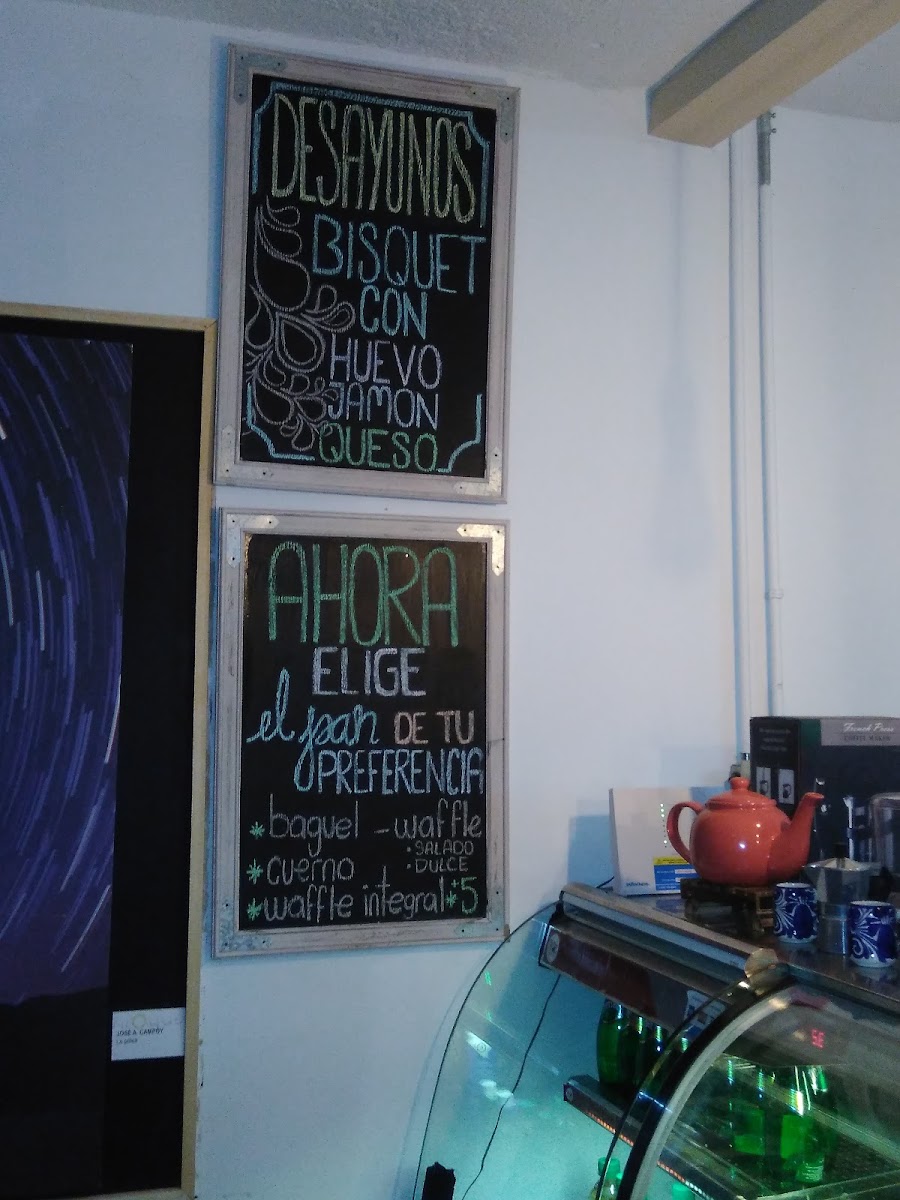 DESAYUNOS
BISQUET
CON
HUEVO
JAMON
QUESO
AHORA
ELIGE
el pan DE TU
PREFERENCIA
* baguel - waffle
· SALADO
* cuerno · DULCE
* waffle integral +5
JOSE A. CAMPOY
French Press
COFFEE MAKER